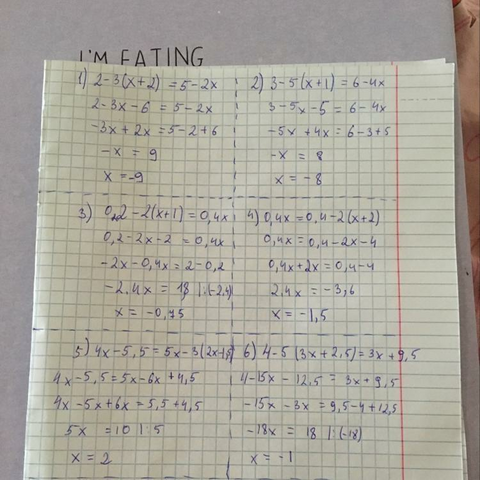 I'M EATING
1) 2-3(x+2) = 5-2x
2-3x-6 = 5-2x
-3x+2x = 5-2+6
-x = 9
x = -9
2) 3-5(x+1) = 6-4x
3-5x-5 = 6-4x
-5x+4x = 6-3+5
-x = 8
x = -8
3) 0,2-2(x+1) = 0,4x
0,2-2x-2 = 0,4x
-2x-0,4x = 2-0,2
-2.4x = 1,8 |:(-2,4)
x = -0,75
4) 0,4x = 0,4-2(x+2)
0,4x = 0,4-2x-4
0,4x+2x = 0,4-4
2.4x = -3,6
x = -1,5
5) 4x-5,5 = 5x-3(2x-1,5)
4x-5,5 = 5x-6x+4,5
4x-5x+6x = 5,5+4,5
5x = 10 |:5
x = 2
6) 4-5(3x+2,5) = 3x+9,5
4-15x-12,5 = 3x+9,5
-15x-3x = 9,5-4+12,5
-18x = 18 |:(-18)
x = -1